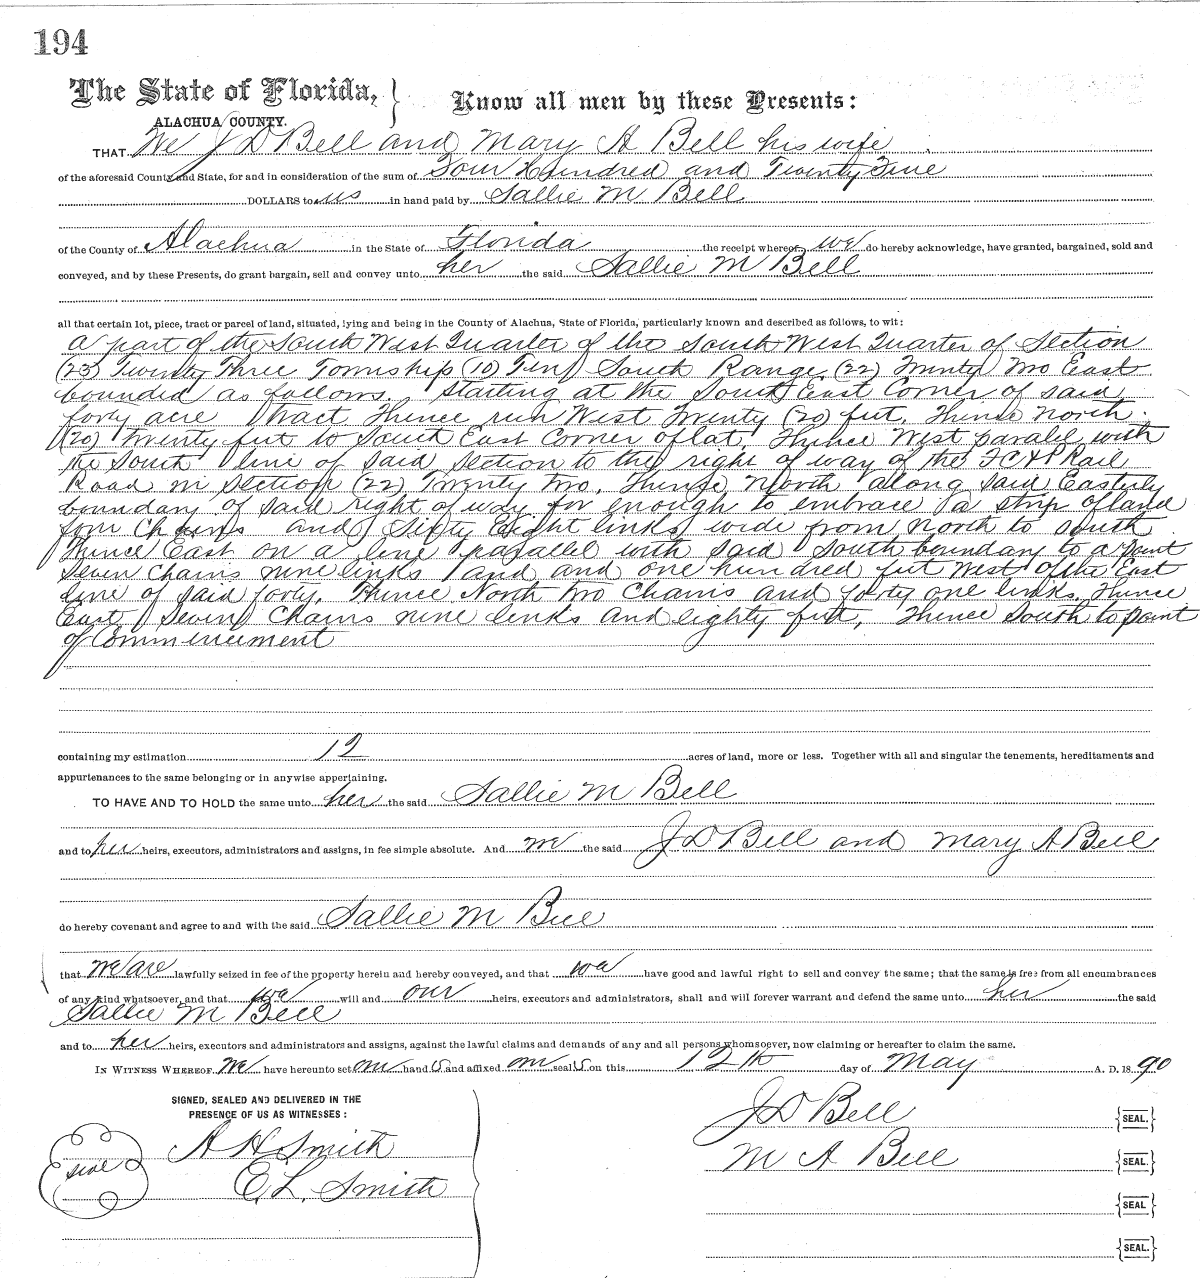 194
The State of Florida, } Know all men by these Presents:
ALACHUA COUNTY.
THAT We J D Bell and Mary A Bell his wife
of the aforesaid County and State, for and in consideration of the sum of Four Hundred and Twenty Five
DOLLARS to us in hand paid by Sallie M Bell
of the County of Alachua in the State of Florida the receipt whereof we do hereby acknowledge, have granted, bargained, sold and
conveyed, and by these Presents, do grant bargain, sell and convey unto her the said Sallie M Bell
all that certain lot, piece, tract or parcel of land, situated, lying and being in the County of Alachua, State of Florida, particularly known and described as follows, to wit:
a part of the South West Quarter of the South West Quarter of Section
(23) Twenty Three Township (10) Ten South Range (22) Twenty Two East
bounded as follows. Starting at the South East Corner of said
forty acre tract Thence run West Twenty (20) feet, Thence North
(20) Twenty feet to South East Corner of lat, Thence West paralel with
the South line of said section to the right of way of the F C & P Rail
Road in section (22) Twenty Two, Thence North along said Easterly
boundary of said right of way far enough to embrace a strip of land
four Chains and Sixty Eight links wide from North to South
Thence East on a line parallel with said South boundary to a point
Seven Chains nine links and and one hundred feet West of the East
line of said forty, Thence North two Chains and forty one links, Thence
East Seven Chains nine links and eighty feet, Thence South to point
of Commencement
containing my estimation 12 acres of land, more or less. Together with all and singular the tenements, hereditaments and
appurtenances to the same belonging or in anywise appertaining.
TO HAVE AND TO HOLD the same unto her the said Sallie M Bell
and to her heirs, executors, administrators and assigns, in fee simple absolute. And we the said J D Bell and Mary A Bell
do hereby covenant and agree to and with the said Sallie M Bell
that we are lawfully seized in fee of the property herein and hereby conveyed, and that we have good and lawful right to sell and convey the same; that the same is free from all encumbrances
of any kind whatsoever, and that we will and our heirs, executors and administrators, shall and will forever warrant and defend the same unto her the said
Sallie M Bell
and to her heirs, executors and administrators and assigns, against the lawful claims and demands of any and all persons whomsoever, now claiming or hereafter to claim the same.
IN WITNESS WHEREOF We have hereunto set our hand s and affixed our seal s on this 12th day of May A. D. 18 90
SIGNED, SEALED AND DELIVERED IN THE
PRESENCE OF US AS WITNESSES:
J D Bell {SEAL.}
A H Smith
M A Bell {SEAL.}
seal
E. L. Smith
{SEAL}
{SEAL.}